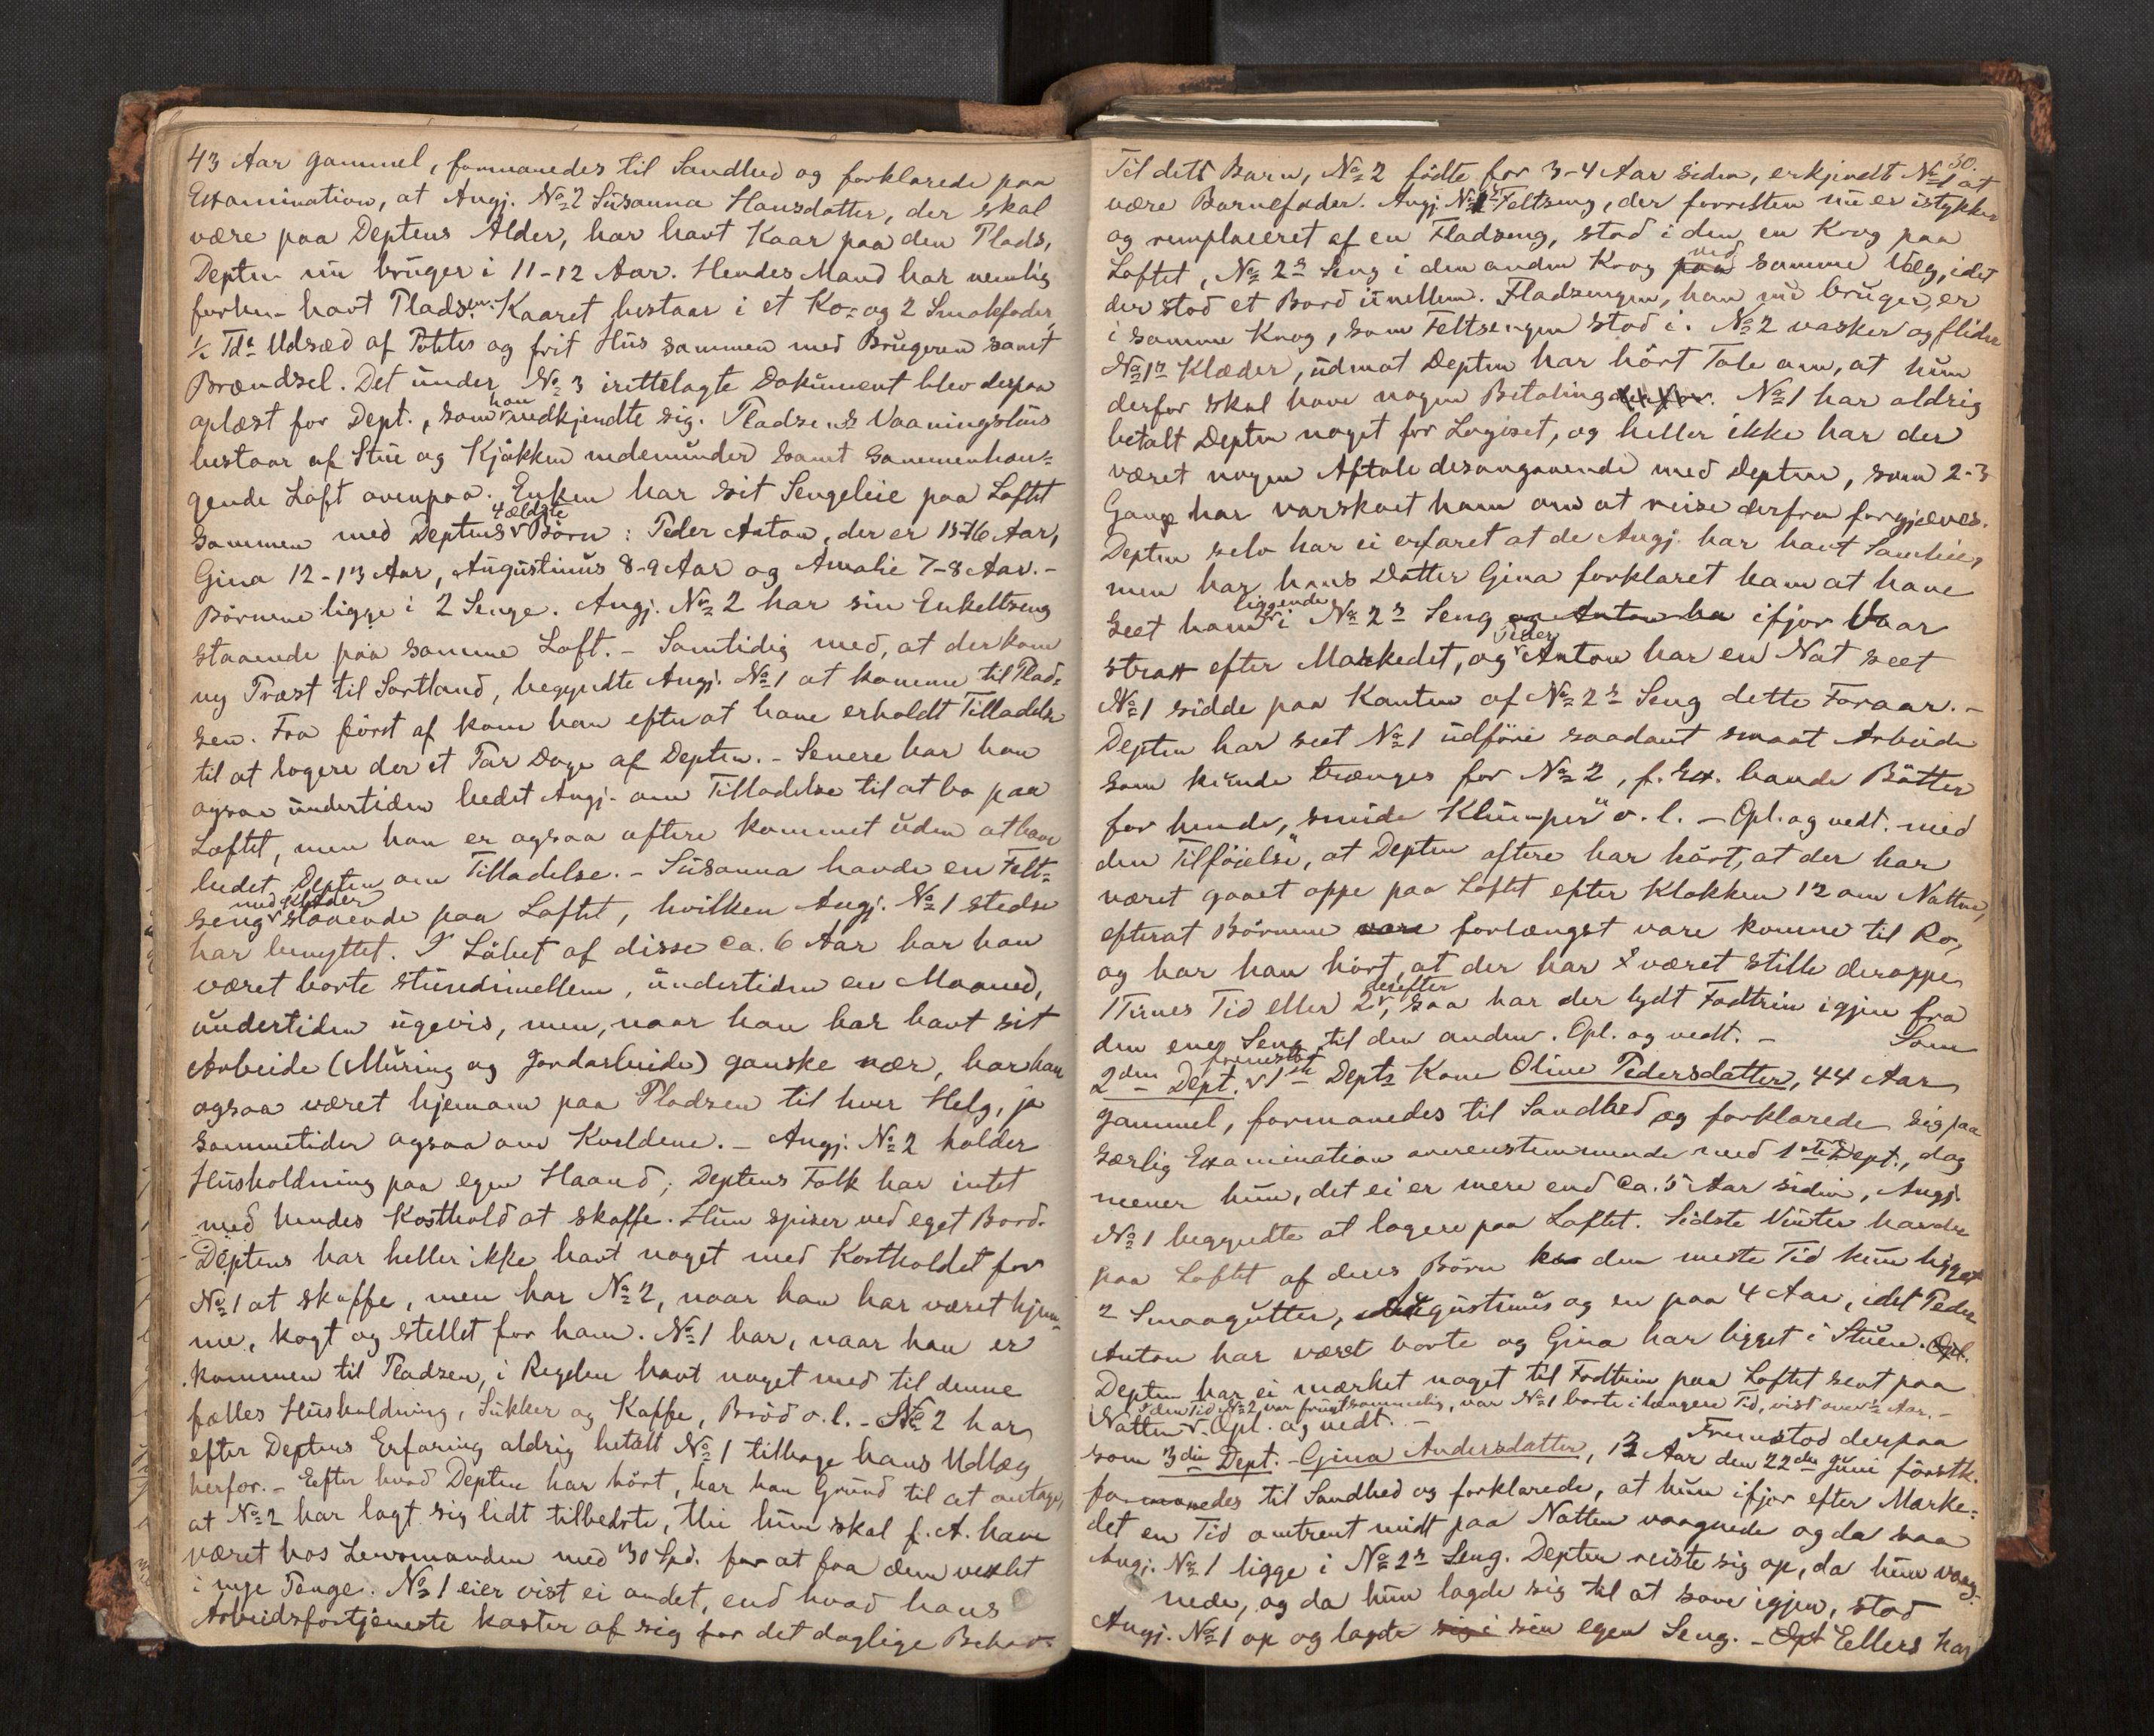 43 Aar gammel, formanedes til Sandhed og forklarede paa
Examination, at Angj. No 2 Susanna Hansdatter, der skal
være paa Deptens Alder, har havt Kaar paa den Plads,
Depten nu bruger i 11-12 Aar. Hendes Mand har nemlig
forhen havt Pladsen. Kaaret bestaar i et Ko- og 2 Smalefoder,
½ Tde Udsæd af Potetes og frit Hus sammen med Brugeren samt
Brændsel. Det under No 3 irettelagte Dokument blev derpaa
oplæst for Dept., som han vedkjendte sig. Pladsens Vaaningshus
bestaar af Stue og Kjøkken nedenunder samt sammenhæn-
gende Loft ovenpaa. Enken har sit Sengeleie paa Loftet
sammen med Deptens 4 ældste Børn: Peder Anton, der er 15-16 Aar,
Gina 12-13 Aar, Augustinus 8-9 Aar og Amalie 7-8 Aar. -
Børnene ligge i 2 Senge. Angj. No 2 har sin Enkeltseng
staaende paa samme Loft. - Samtidig med, at der kom
ny Præst til Sortland, begyndte Angj. No 1 at komme til Plad-
sen. Fra først af kom han efter at have erholdt Tilladelse
til at logere der et Par Dage af Depten. - Senere har han
ogsaa undertiden bedet Angj. om Tilladelse til at bo paa
Loftet, men han er ogsaa oftere kommet uden at have
bedet Depten om Tilladelse. - Susanna havde en Felt-
seng med Klæder staaende paa Loftet, hvilken Angj. No 1 stedse
har benyttet. I Løbet af disse ca. 6 Aar har han
været borte stundimellem, undertiden en Maaned,
undertiden ugevis, men, naar han har havt sit
Arbeide (Muring og Jordarbeide) ganske nær, har han
ogsaa været hjemom paa Pladsen til hver Helg, ja
sommetider ogsaa om Kveldene. - Angj. No 2 holder
Husholdning paa egen Haand; Deptens Folk har intet
med hendes Kosthold at skaffe. Hun spiser ved eget Bord.
Deptens har heller ikke havt noget med Kostholdet for
No 1 at skaffe, men har No 2, naar han har været hjem-
me, kogt og stellet for ham. No 1 har, naar han er
kommen til Pladsen, i Regelen havt noget med til denne
fælles Husholdning, Sukker og Kaffe, Brød o. l. - No 2 har
efter Deptens Erfaring aldrig betalt No 1 tilbage hans Udlæg
herfor. - Efter hvad Depten har hørt, har han Grund til at antage,
at No 2 har lagt sig lidt tilbedste, thi hun skal f. A. have
været hos Lensmanden med 30 Spd. for at faa dem vexlet
i nye Penge. No 1 eier vist ei andet, end hvad hans
Arbeidsfortjeneste kaster af sig for det daglige Behov.
30.
Til dett Barn, No 2 fødte for 3-4 Aar siden, erkjendte No 1 at
være Barnefader. Angj. No 1s Feltseng, der forresten nu er istykker
og remplaceret af en Fladseng, stod i den en Krog paa
Loftet, No 2s Seng i den anden Krog paa ved samme Væg, idet
der stod et Bord imellem. Fladsengen, han nu bruger, er
i samme Krog, som Feltsengen stod i. No 2 vasker og flider
No 1s Klæder, uden at Depten har hørt Tale om, at hun
derfor skal have nogen Betaling derfor. No 1 har aldrig
betalt Depten noget for Logiset, og heller ikke har der
været nogen Aftale desangaaende med Depten, som 2-3
Gange har varskoet ham om at reise derfra forgjæves.
Depten selv har ei erfaret at de Angj. har havt Samleie,
men har hans Datter Gina forklaret ham at have
seet ham liggende i No 2s Seng og Anton ha ifjor Vaar
strax efter Markedet, og Peder Anton har en Nat seet
No 1 sidde paa Kanten af No 2s Seng dette Foraar. -
Depten har seet No 1 udføre saadant smaat Arbeide
som kunde trænges for No 2, f. Ex. bande Bøtter
for hende, smide "Klumper" o. l. - Opl. og vedt. med
den Tilføielse, at Depten oftere har hørt, at der har
været gaaet oppe paa Loftet efter Klokken 12 om Natten,
efterat Børnene vare forlængst vare komne til Ro,
og har han hørt, at der har været stille deroppe
1 Times Tid eller 2 derefter, saa har der lydt Fodtrin igjen fra
den ene Seng til den anden. Opl. og vedt. - Som
2den Dept. fremstod 1ste Depts Kone Oline Pedersdatter, 44 Aar
gammel, formanedes til Sandhed og forklarede sig paa
særlig Examination overensstemmende med 1ste Dept., dog
mener hun, det ei er mere end ca. 5 Aar siden, Angj.
No 1 begyndte at logere paa Loftet. Sidste Vinter havde
paa Loftet af deres Børn har den meste Tid kun ligget
2 Smaagutter, Augustinus og en paa 4 Aar, idet Peder
Anton har været borte og Gina har ligget i Stuen. Opl.
Depten har ei mærket noget til Fodtrin paa Loftet sent paa
Natten. I den Tid No 2 var frugtsommelig, var No 1 borte i længere Tid, vist over ½ Aar. -
Opl. og vedt. - Fremstod derpaa
som 3die Dept. Gina Andersdatter, 13 Aar den 22de Juni førstk.
formanedes til Sandhed og forklarede, at hun ifjor efter Marke-
det en Tid omtrent midt paa Natten vaagnede og da saa
Angj. No 1 ligge i No 2s Seng. Depten reiste sig op, da hun vaag-
nede, og da hun lagde sig til at sove igjen, stod
Angj. No 1 op og lagde sig i sin egen Seng. - Opl Ellers har